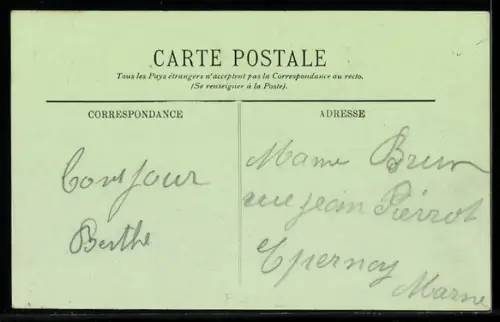 CARTE POSTALE
Tous les Pays étrangers n'acceptent pas la Correspondance au recto.
(Se renseigner à la Poste).
CORRESPONDANCE
Bonjour
Berthe
ADRESSE
Mame Brun
rue jean Piérrot
Epernay
Marne